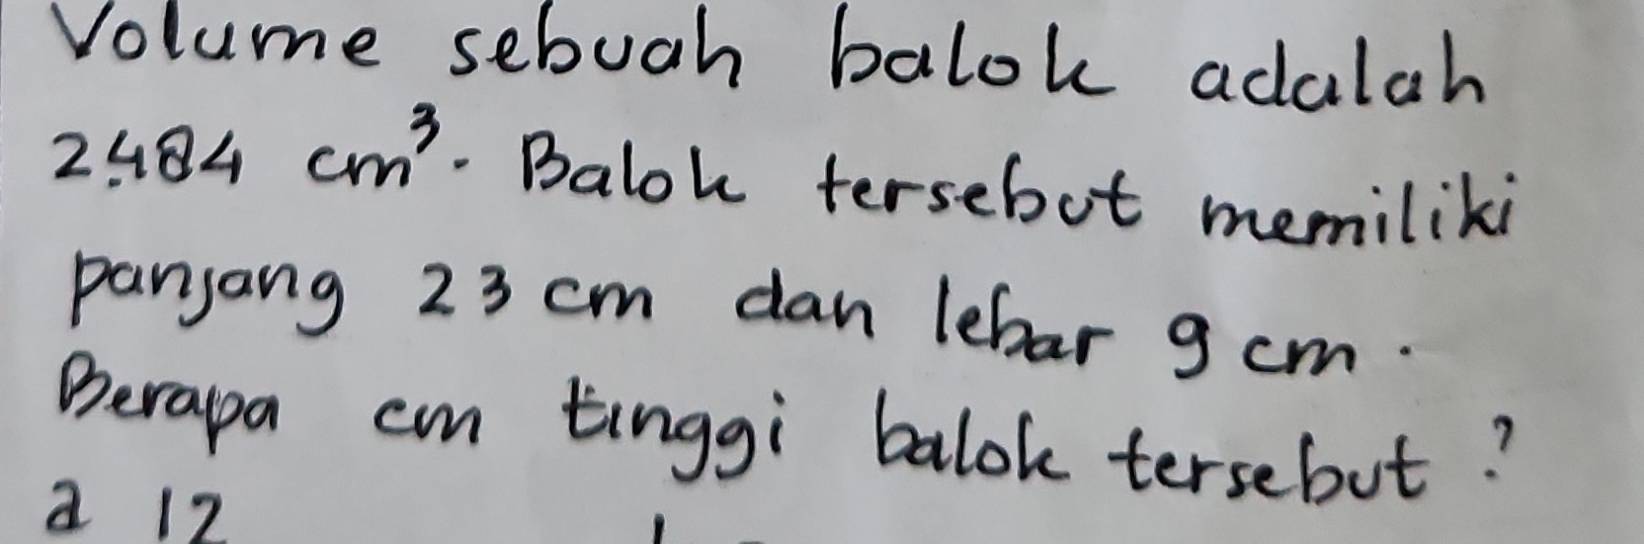 Volume sebuah balok adalah
2.484 cm³. Balok tersebut memiliki
panjang 23 cm dan lebar 9 cm.
Berapa cm tinggi balok tersebut?
a 12